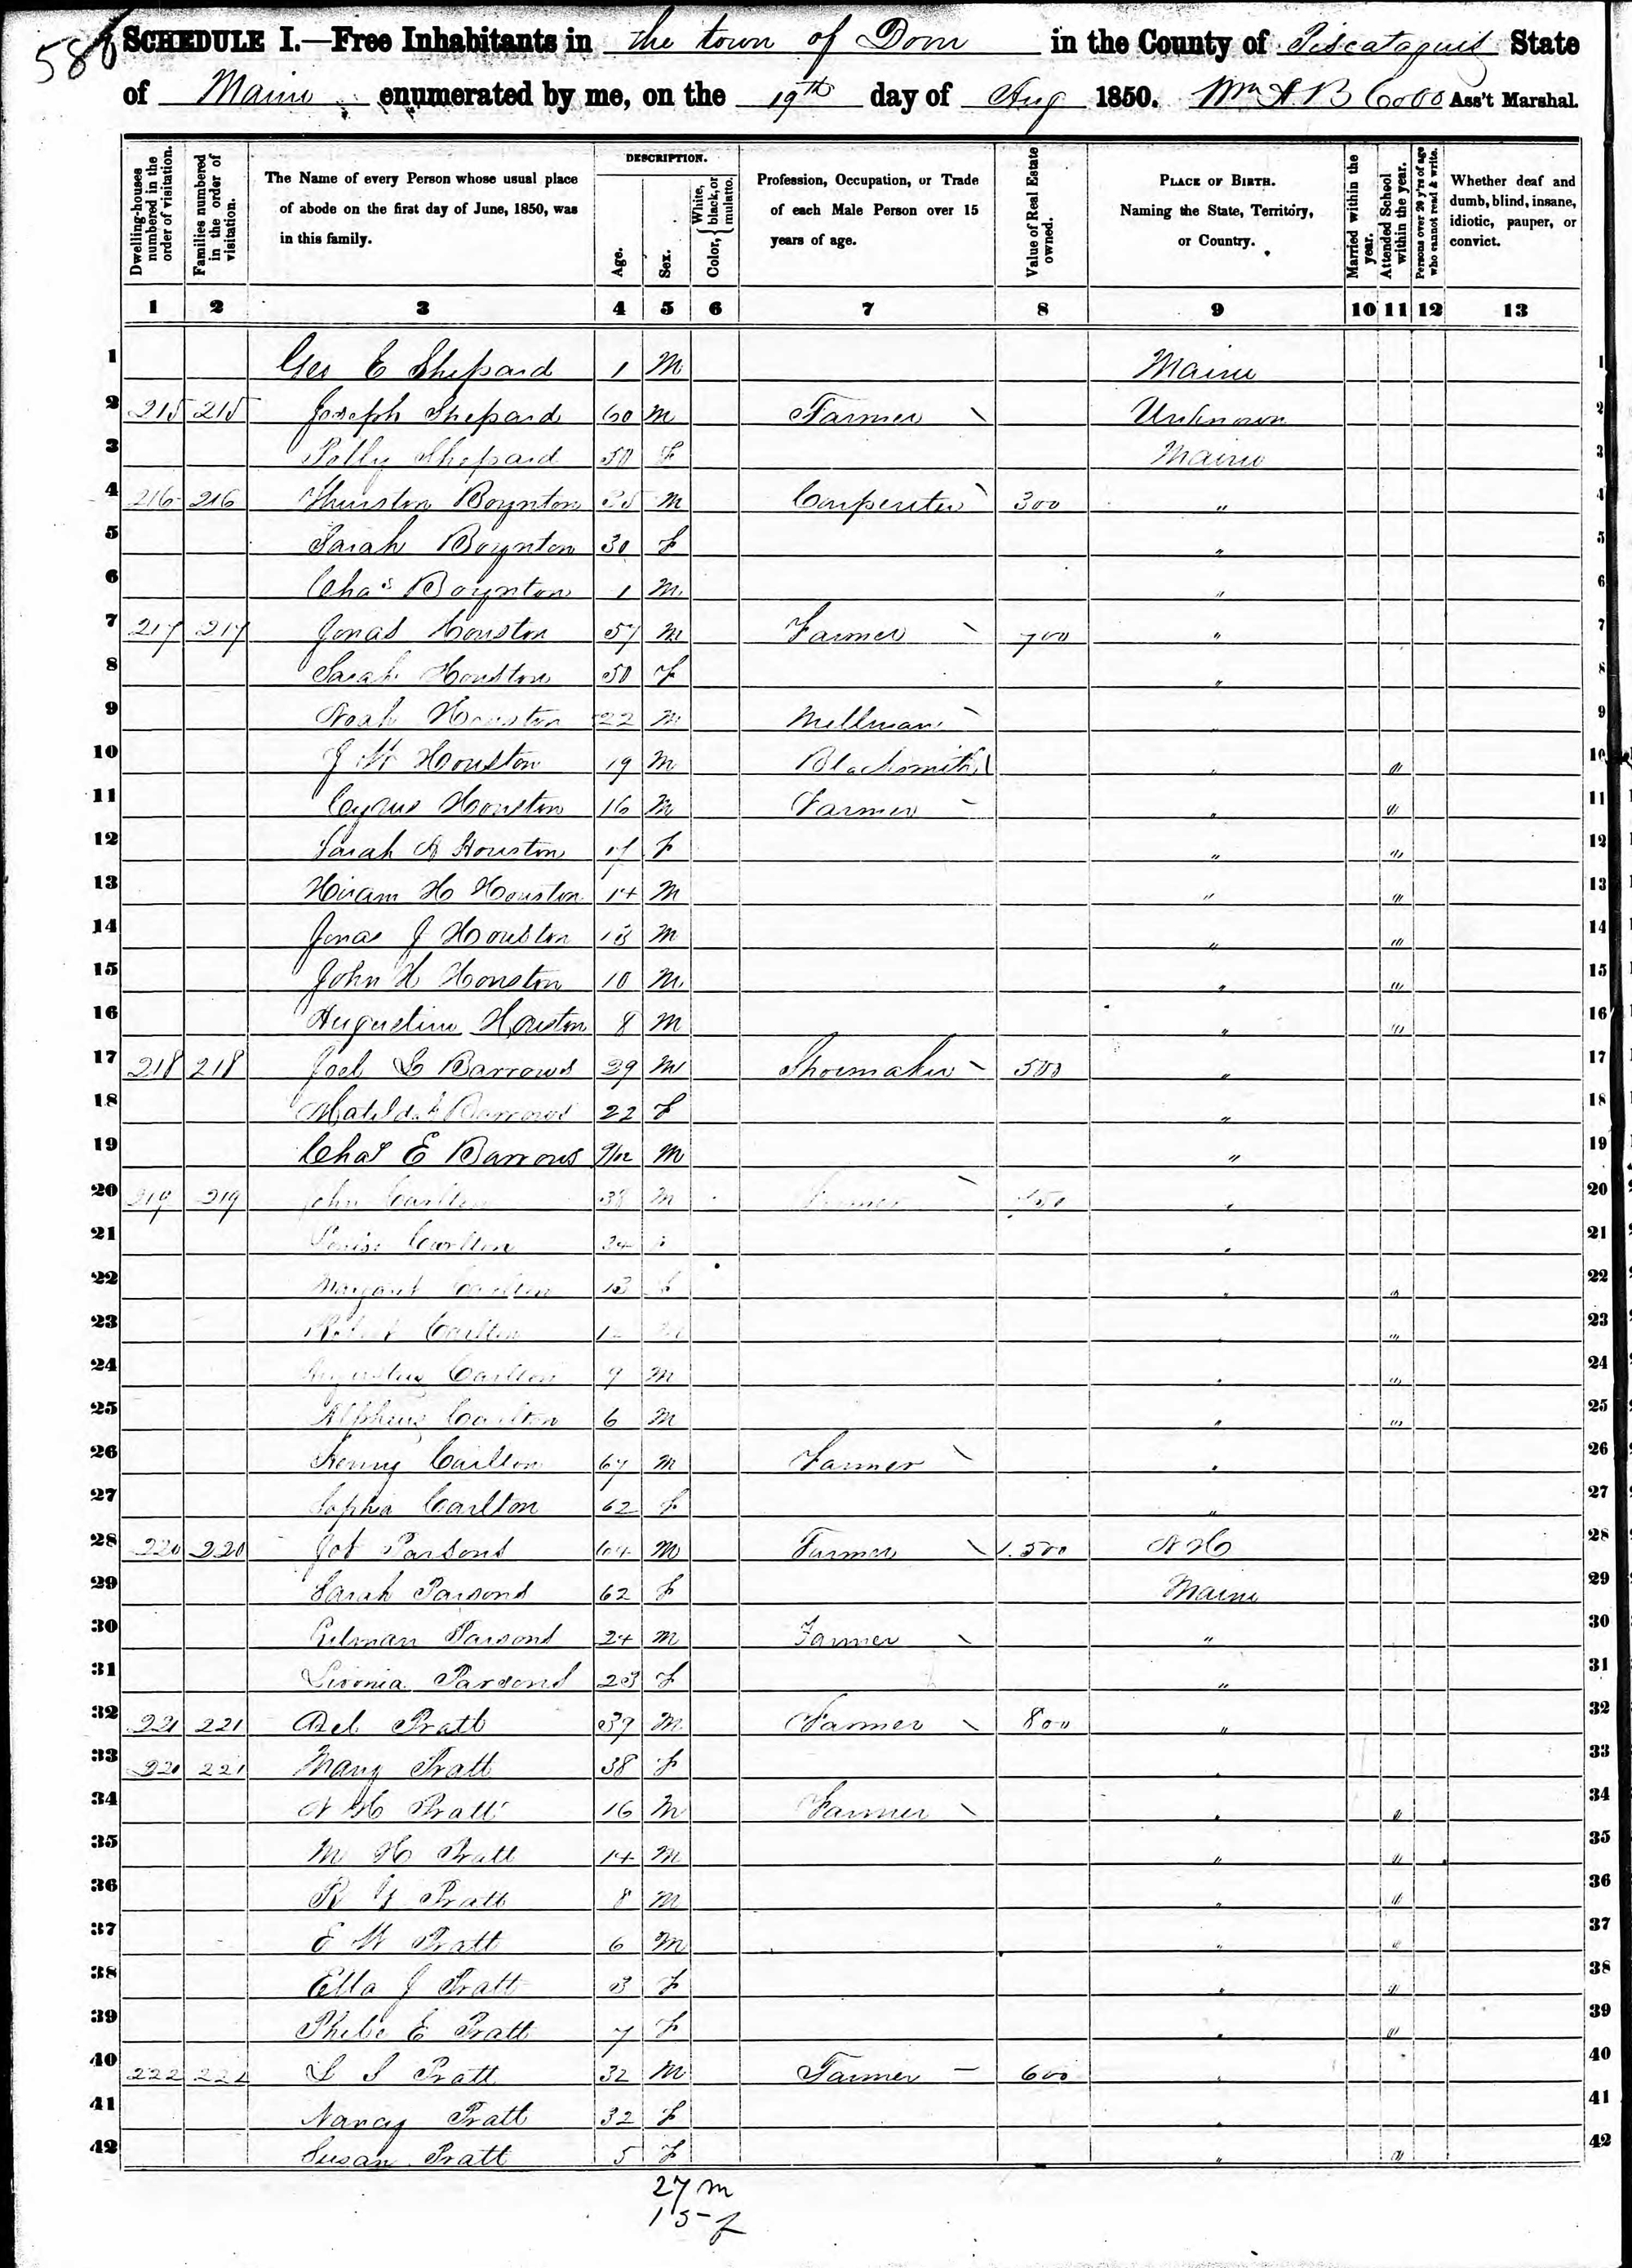 586
SCHEDULE I.—Free Inhabitants in the town of Dover in the County of Piscataquis State
of Maine enumerated by me, on the 19th day of Aug 1850. Wm A B Cobb Ass't Marshal.
Dwelling-houses numbered in the order of visitation.
Families numbered in the order of visitation.
The Name of every Person whose usual place of abode on the first day of June, 1850, was in this family.
DESCRIPTION.
Age.
Sex.
Color, { White, black, or mulatto.
Profession, Occupation, or Trade of each Male Person over 15 years of age.
Value of Real Estate owned.
PLACE OF BIRTH. Naming the State, Territory, or Country.
Married within the year.
Attended School within the year.
Persons over 20 y'rs of age who cannot read & write.
Whether deaf and dumb, blind, insane, idiotic, pauper, or convict.
1 2 3 4 5 6 7 8 9 10 11 12 13
1 Geo E Shepard 1 M Maine 1
2 215 215 Joseph Shepard 60 M Farmer Unknown 2
3 Polly Shepard 50 F Maine 3
4 216 216 Thurston Boynton 35 M Carpenter 300 " 4
5 Sarah Boynton 30 F " 5
6 Chas Boynton 1 M " 6
7 217 217 Jonas Houston 57 M Farmer 700 " 7
8 Sarah Houston 50 F " 8
9 Noah Houston 22 M Millman " 9
10 J W Houston 19 M Blacksmith " " 10
11 Cyrus Houston 16 M Farmer " " 11
12 Sarah A Houston 17 F " " 12
13 Hiram H Houston 14 M " " 13
14 Jonas J Houston 13 M " " 14
15 John H Houston 10 M " " 15
16 Augustine Houston 8 M " " 16
17 218 218 Joel S Barrows 29 M Shoemaker 500 " 17
18 Matilda Barrows 22 F " 18
19 Chas E Barrows 9/12 M " 19
20 219 219 John Carlton 38 M Farmer " 20
21 Louisa Carlton 34 F " 21
22 Margaret Carlton 13 F " " 22
23 Robert Carlton " " 23
24 Augustus Carlton 9 M " " 24
25 Alpheus Carlton 6 M " " 25
26 Henry Carlton 67 M Farmer " 26
27 Sophia Carlton 62 F " 27
28 220 220 Job Parsons 64 M Farmer 1.500 N H 28
29 Sarah Parsons 62 F Maine 29
30 Gilman Parsons 24 M Farmer " 30
31 Livonia Parsons 23 F " 31
32 221 221 Bel Pratt 39 M Farmer 800 " 32
33 220 221 Mary Pratt 38 F " 33
34 N H Pratt 16 M Farmer " " 34
35 M H Pratt 14 M " " 35
36 R Pratt 8 M " " 36
37 E W Pratt 6 M " " 37
38 Ella J Pratt 3 F " " 38
39 Phebe E Pratt 7 F " " 39
40 222 222 S S Pratt 32 M Farmer 600 " 40
41 Nancy Pratt 32 F " 41
42 Susan Pratt 5 F " " 42
27 m
15 f